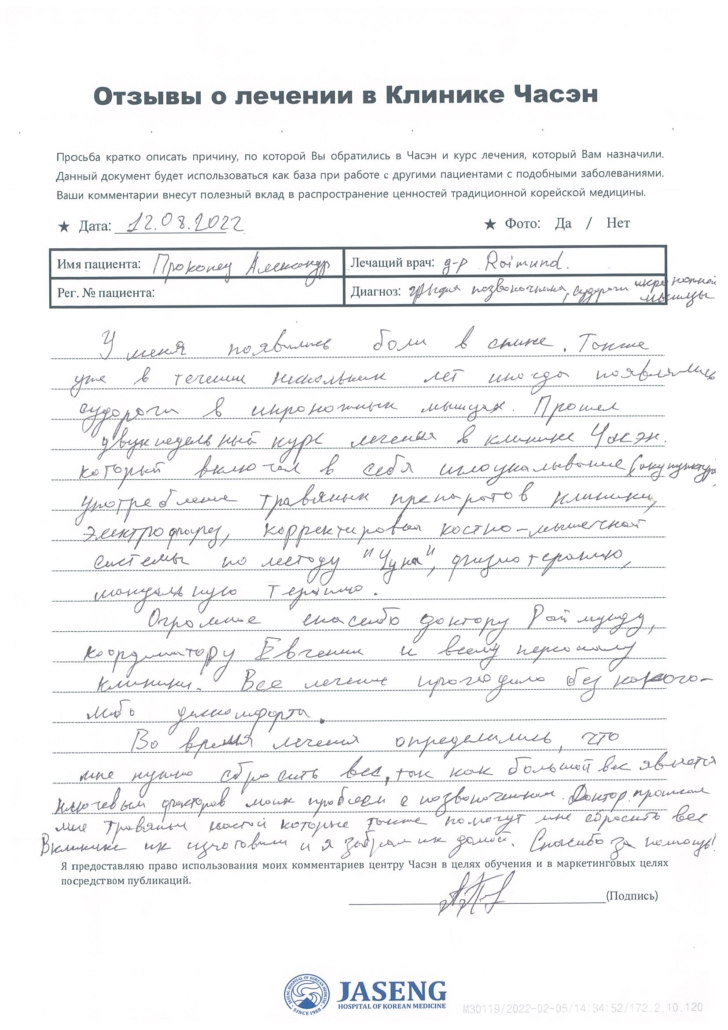 Отзывы о лечении в Клинике Часэн
Просьба кратко описать причину, по которой Вы обратились в Часэн и курс лечения, который Вам назначили.
Данный документ будет использоваться как база при работе с другими пациентами с подобными заболеваниями.
Ваши комментарии внесут полезный вклад в распространение ценностей традиционной корейской медицины.
★ Дата: 12.08.2022 ★ Фото: Да / Нет
Имя пациента: Прокопец Александр Лечащий врач: д-р Raimund.
Рег. № пациента: Диагноз: грыжа позвоночника, судороги икроножной мышцы
У меня появились боли в спине. Также
уже в течении нескольких лет иногда появлялись
судороги в икроножных мышцах. Прошел
двухнедельный курс лечения в клинике Часэн.
который включал в себя иглоукалывание (акупунктура)
употребление травяных препаратов клиники,
электрофорез, корректировка костно-мышечной
системы по методу "Чуна", физиотерапию,
мануальную терапию.
Огромное спасибо доктору Раймунду,
координатору Евгении и всему персоналу
клиники. Все лечение проходило без какого-
либо дискомфорта.
Во время лечения определились, что
мне нужно сбросить вес, так как большой вес является
ключевым фактором моих проблем с позвоночником. Доктор прописал
мне травяной настой которые также помогут мне сбросить вес
В клинике их изготовили и я забрал их домой. Спасибо за помощь!
Я предоставляю право использования моих комментариев центру Часэн в целях обучения и в маркетинговых целях
посредством публикаций.
(Подпись)
JASENG
HOSPITAL OF KOREAN MEDICINE
SINCE 1988
M30119/2022-02-05/14:34:52/172.2.10.120